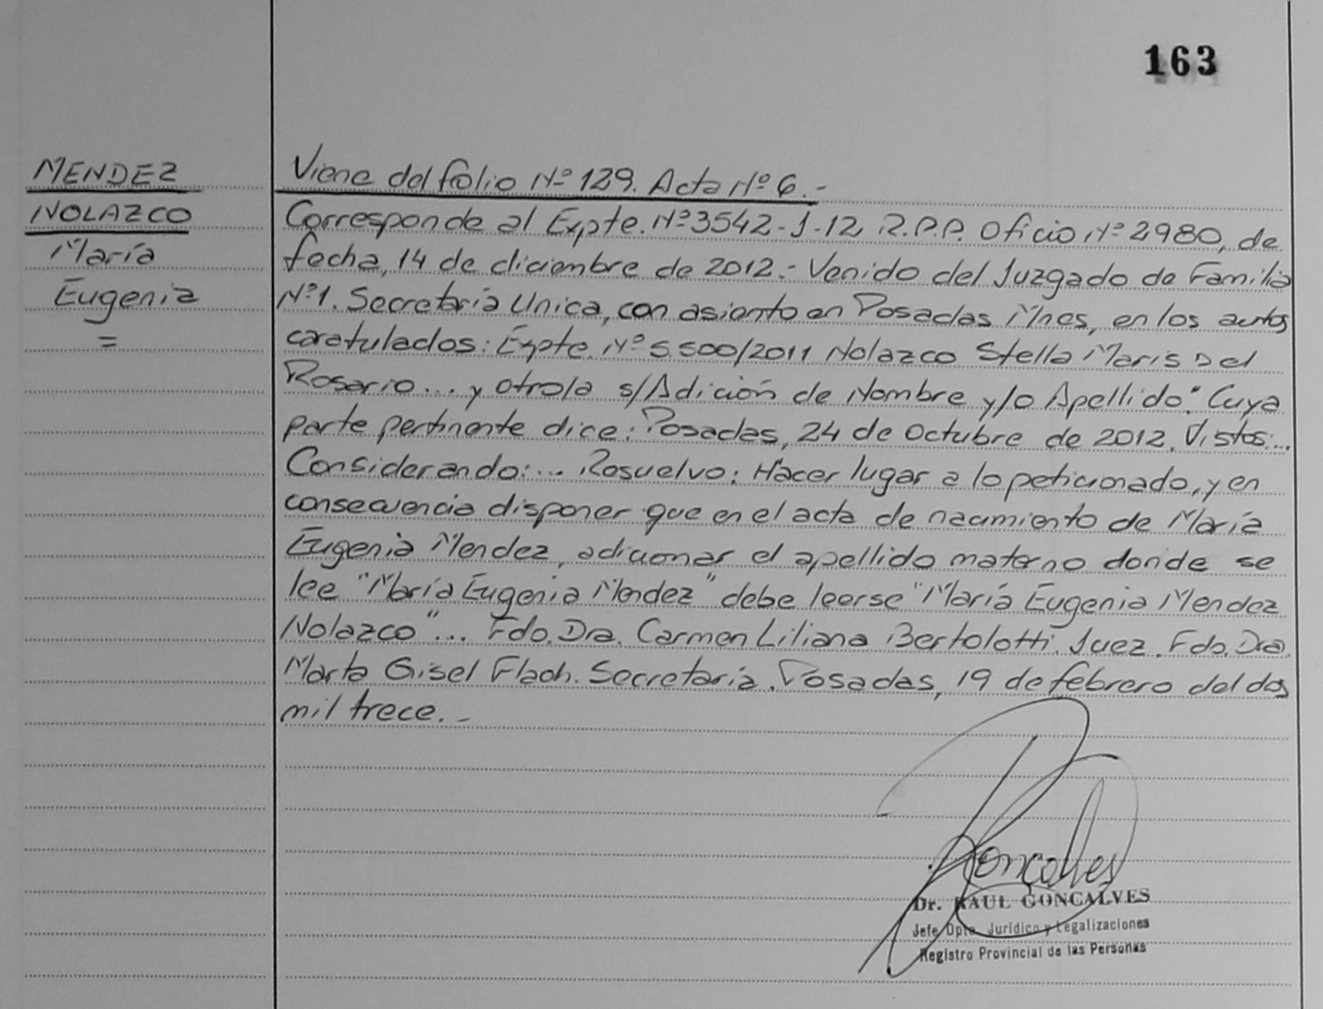 163
MENDEZ
NOLAZCO
María
Eugenia
=
Viene del folio Nº 129. Acta Nº 6.-
Corresponde al Expte. Nº 3542-J-12, R.P.P. Oficio Nº 2980, de
fecha, 14 de diciembre de 2012.- Venido del Juzgado de Familia
Nº1. Secretaría Unica, con asiento en Posadas Mnes, en los autos
caratulados: Expte. Nº 5.500/2011 Nolazco Stella Maris Del
Rosario... y otro/a s/Adición de Nombre y/o Apellido". Cuya
parte pertinente dice: Posadas, 24 de Octubre de 2012. Vistos:...
Considerando:... Resuelvo: Hacer lugar a lo peticionado, y en
consecuencia disponer que en el acta de nacimiento de María
Eugenia Mendez, adicionar el apellido materno donde se
lee "María Eugenia Mendez" debe leerse "María Eugenia Mendez
Nolazco"... Fdo. Dra. Carmen Liliana Bertolotti. Juez. Fdo. Dra.
Marta Gisel Flach. Secretaria. Posadas, 19 de febrero del dos
mil trece.-
Goncalves
Dr. RAUL GONCALVES
Jefe Dpto. Jurídico y Legalizaciones
Registro Provincial de las Personas